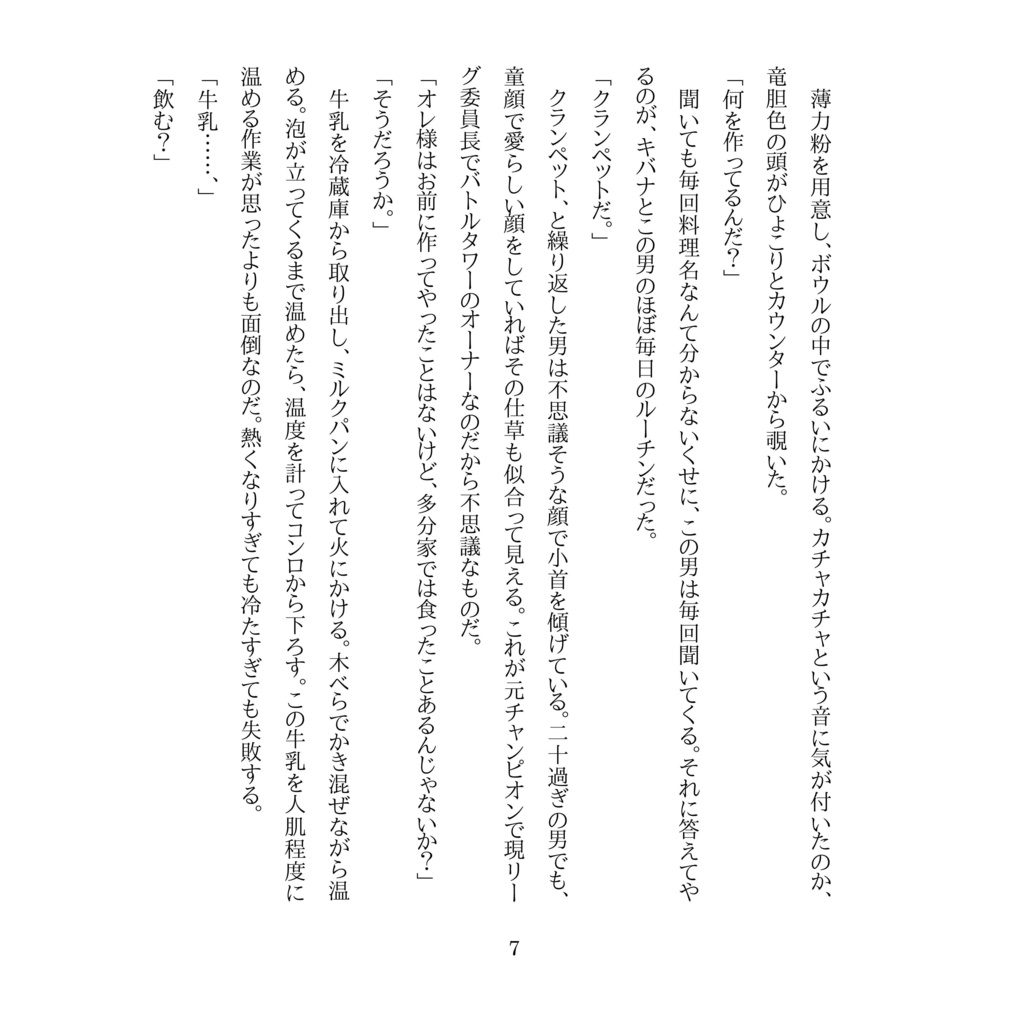 薄力粉を用意し、ボウルの中でふるいにかける。カチャカチャという音に気が付いたのか、
竜胆色の頭がひょこりとカウンターから覗いた。
「何を作ってるんだ？」
聞いても毎回料理名なんて分からないくせに、この男は毎回聞いてくる。それに答えてや
るのが、キバナとこの男のほぼ毎日のルーチンだった。
「クランペットだ。」
クランペット、と繰り返した男は不思議そうな顔で小首を傾げている。二十過ぎの男でも、
童顔で愛らしい顔をしていればその仕草も似合って見える。これが元チャンピオンで現リー
グ委員長でバトルタワーのオーナーなのだから不思議なものだ。
「オレ様はお前に作ってやったことはないけど、多分家では食ったことあるんじゃないか？」
「そうだろうか。」
牛乳を冷蔵庫から取り出し、ミルクパンに入れて火にかける。木べらでかき混ぜながら温
める。泡が立ってくるまで温めたら、温度を計ってコンロから下ろす。この牛乳を人肌程度に
温める作業が思ったよりも面倒なのだ。熱くなりすぎても冷たすぎても失敗する。
「牛乳……、」
「飲む？」
7